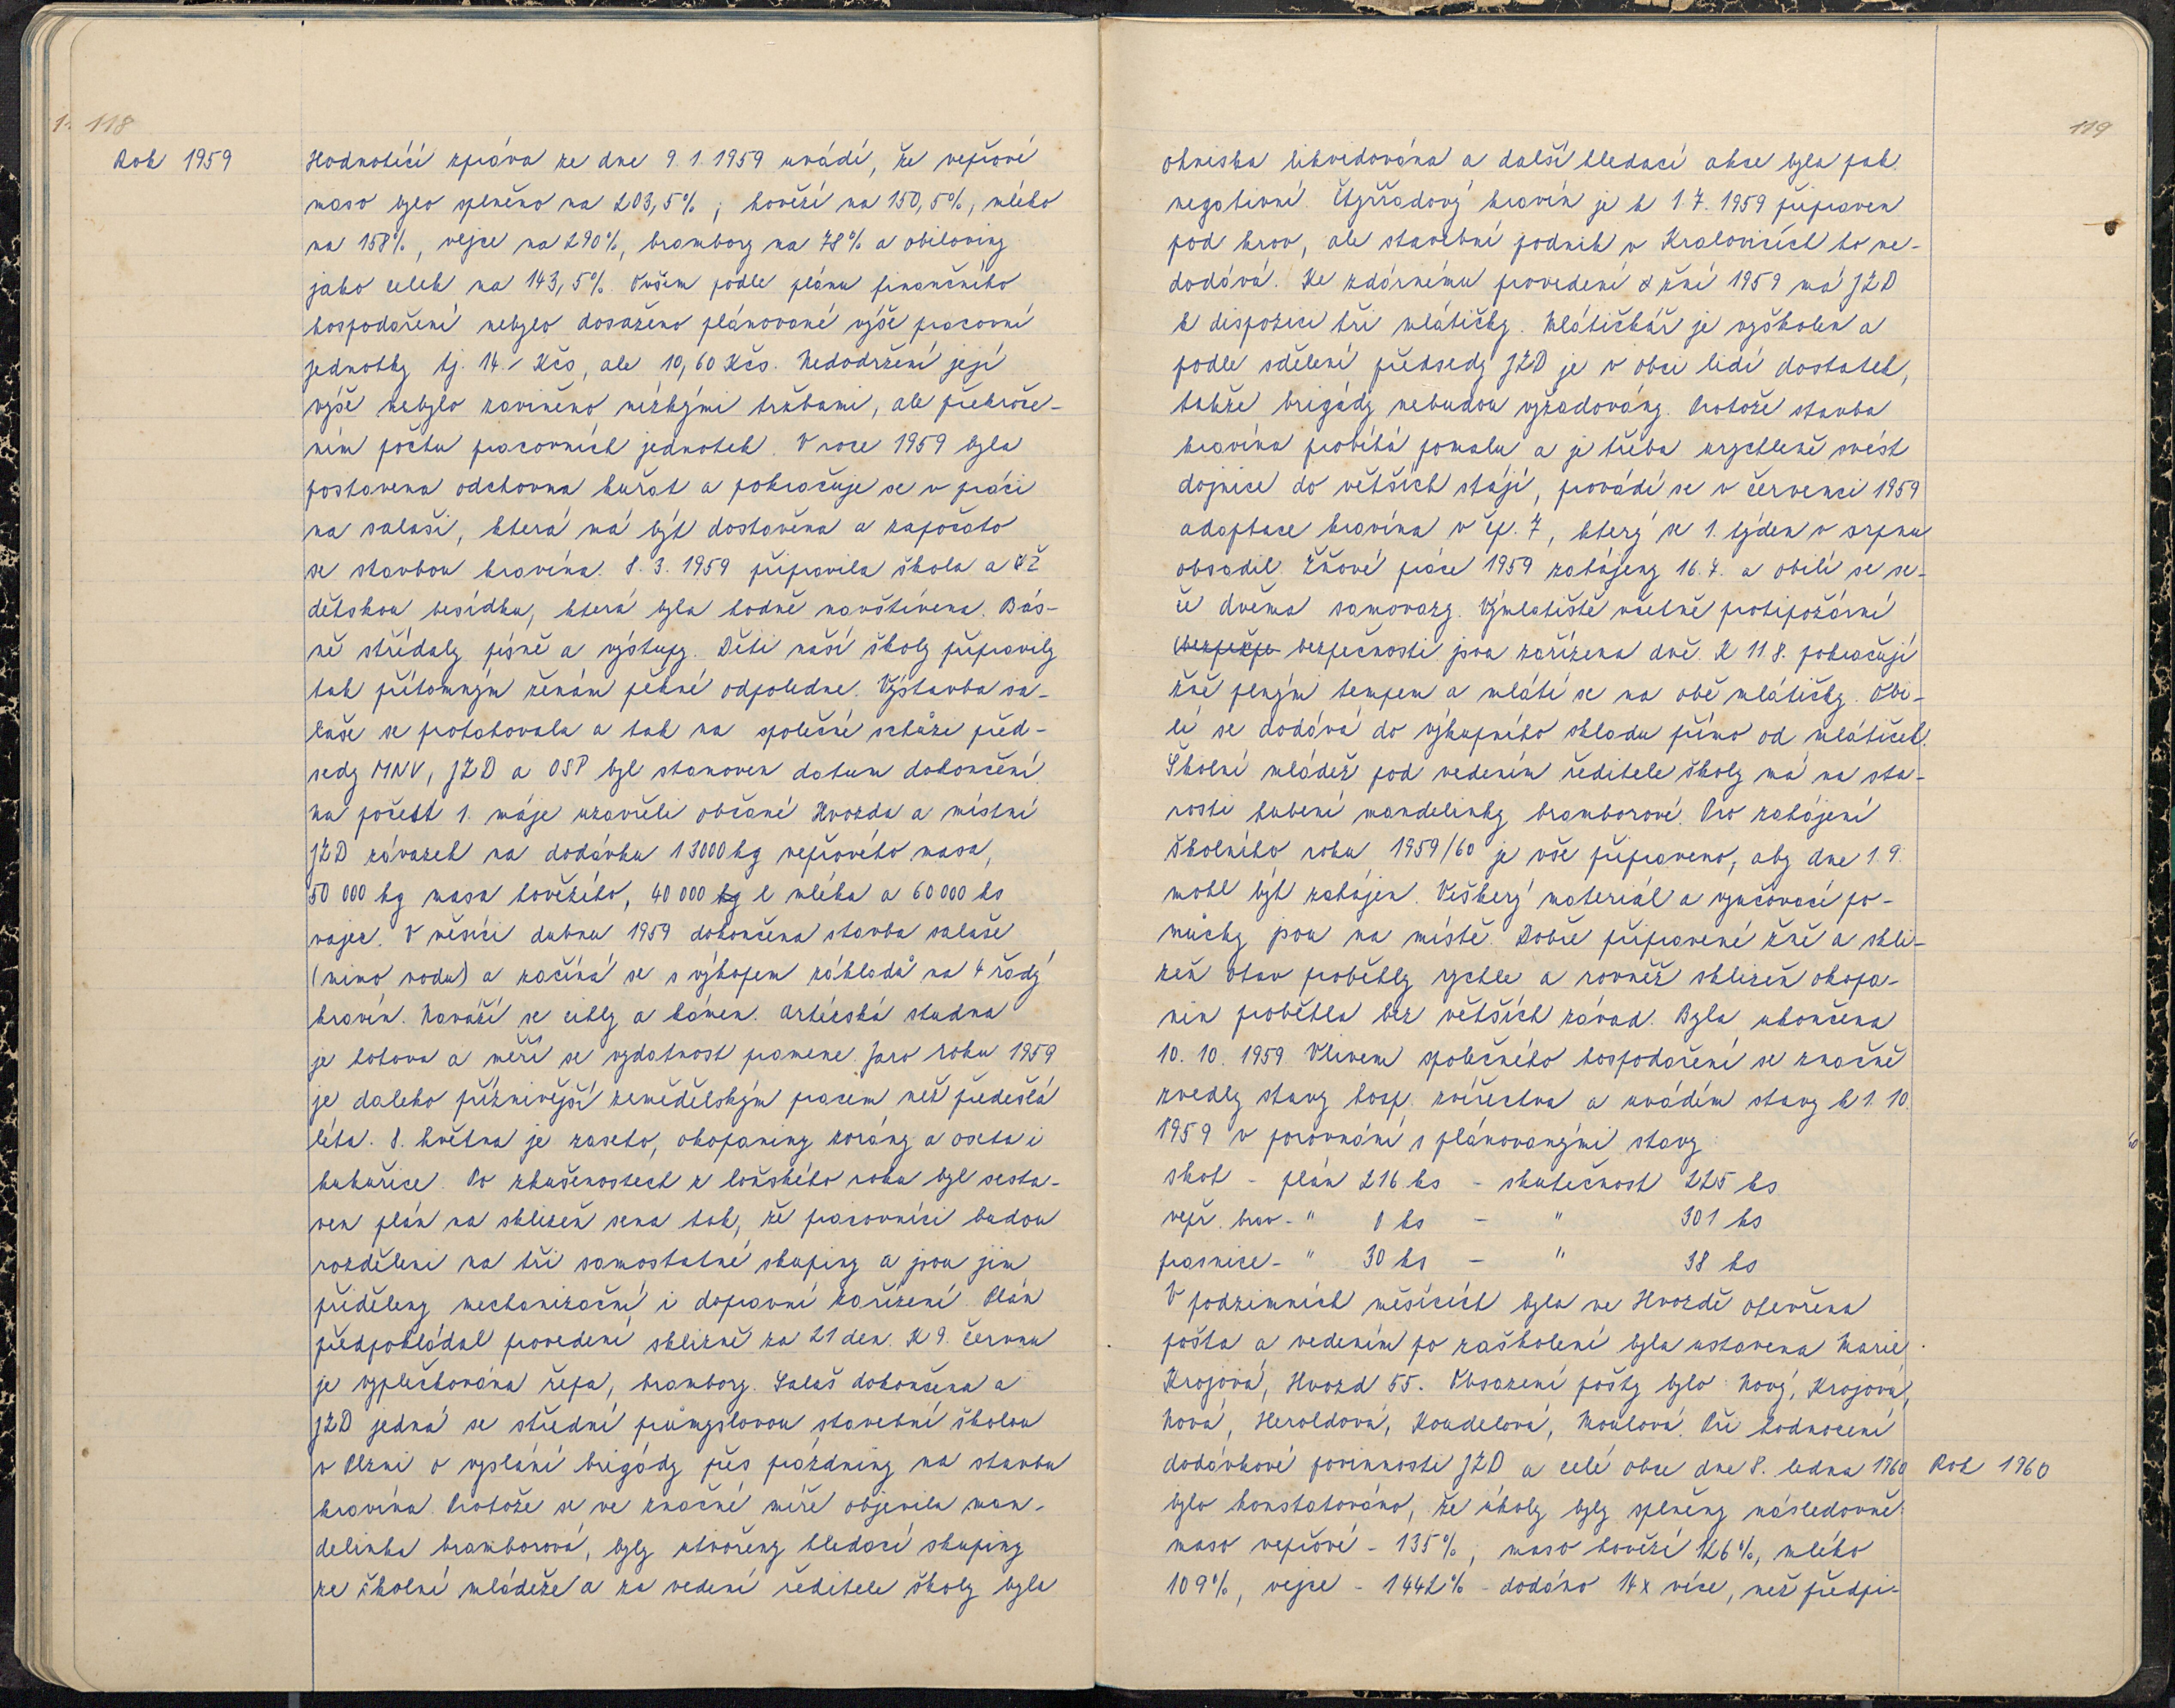 118
Rok 1959
Hodnotící zpráva ze dne 9. 1. 1959 uvádí, že vepřové
maso bylo splněno na 203,5%, hovězí na 150,5%, mléko
na 158%, vejce na 290%, brambory na 78% a obiloviny
jako celek na 143,5%. Ovšem podle plánu finančního
hospodaření nebylo dosaženo plánované výše pracovní
jednotky tj. 14,- Kčs, ale 10,60 Kčs. Nedodržení její
výše nebylo zaviněno nízkými tržbami, ale překroče-
ním počtu pracovních jednotek. V roce 1959 byla
postavena odchovna kuřat a pokračuje se v práci
na salaši, která má být dostavěna a započato
se stavbou kravína. 8. 3. 1959 připravila škola a VŽ
dětskou besídku, která byla hodně navštívena. Bás-
ně střídaly písně a výstupy. Děti naší školy připravily
tak přítomným ženám pěkné odpoledne. Výstavba sa-
laše se protahovala a tak na společné schůzi před-
sedy MNV, JZD a OSP byl stanoven datum dokončení.
Na počest 1. máje uzavřeli občané Hvozda a místní
JZD závazek na dodávku 13000 kg vepřového masa,
50 000 kg masa hovězího, 40 000 kg l mléka a 60 000 ks
vajec. V měsíci dubnu 1959 dokončena stavba salaše
(mimo vodu) a začíná se s výkopem základů na 4 řadý
kravín. Naváží se cihly a kámen. Artéská studna
je hotova a měří se vydatnost pramene. Jaro roku 1959
je daleko příznivější zemědělským pracem než předešlá
léta. 8. května je zaseto, okopaniny zorány a oseta i
kukuřice. Po zkušenostech z loňského roku byl sesta-
ven plán na sklizeň sena tak, že pracovníci budou
rozděleni na tři samostatné skupiny a jsou jim
přiděleny mechanizační i dopravní zařízení. Plán
předpokládal provedení sklizně za 21 den. K 9. červnu
je vyplečkována řepa, brambory. Salaš dokončena a
JZD jedná se střední průmyslovou stavební školou
v Plzni o vyslání brigády přes prázdniny na stavbu
kravína. Protože se ve značné míře objevila man-
delinka bramborová, byly utvořeny hledací skupiny
ze školní mládeže a za vedení ředitele školy byla
119
ohniska likvidována a další hledací akce byla pak
negativní. Čtyřřadový kravín je k 1. 7. 1959 připraven
pod krov, ale stavební podnik v Kralovicích ho ne-
dodává. Ke zdárnému provedení žní 1959 má JZD
k dispozici tři mlátičky. Mlátičkář je vyškolen a
podle sdělení předsedy JZD je v obci lidí dostatek,
takže brigády nebudou vyžadovány. Protože stavba
kravína probíhá pomalu a je třeba urychleně svést
dojnice do větších stájí, provádí se v červenci 1959
adaptace kravína v čp. 7, který se 1. týden v srpnu
obsadil. Žňové práce 1959 zahájeny 16. 7. a obilí se se-
če dvěma samovazy. Výmlatiště včetně protipožární
bezpečnosti jsou zařízena dvě. K 11 8. pokračují
žně plným tempem a mlátí se na obě mlátičky. Obi-
lí se dodává do výkupního skladu přímo od mlátiček.
Školní mládež pod vedením ředitele školy má na sta-
rosti hubení mandelinky bramborové. Pro zahájení
školního roku 1959/60 je vše připraveno, aby dne 1. 9.
mohl být zahájen. Veškerý materiál a vyučovací po-
můcky jsou na místě. Dobře připravené žně a skli-
zeň otav proběhly rychle a rovněž sklizeň okopa-
nin proběhla bez větších závad. Byla ukončena
10. 10. 1959 Vlivem společného hospodaření se značně
zvedly stavy hosp. zvířectva a uvádím stavy k 1. 10.
1959 v porovnání s plánovanými stavy
skot - plán 216 ks - skutečnost 225 ks
vepř. brav - " 0 ks - " 301 ks
prasnice - " 30 ks - " 38 ks
V podzimních měsících byla ve Hvozdě otevřena
pošta a vedením po zaškolení byla ustavena Marie
Krojová, Hvozd 55. Obsazení pošty bylo: Nový, Krojová,
Nová, Heroldová, Koudelová, Moulová. Při hodnocení
dodávkové povinnosti JZD a celé obce dne 8. ledna 1960
Rok 1960
bylo konstatováno, že úkoly byly splněny následovně:
maso vepřové - 135%, maso hovězí 126%, mléko
109%, vejce - 1442% - dodáno 14x více, než předpi-